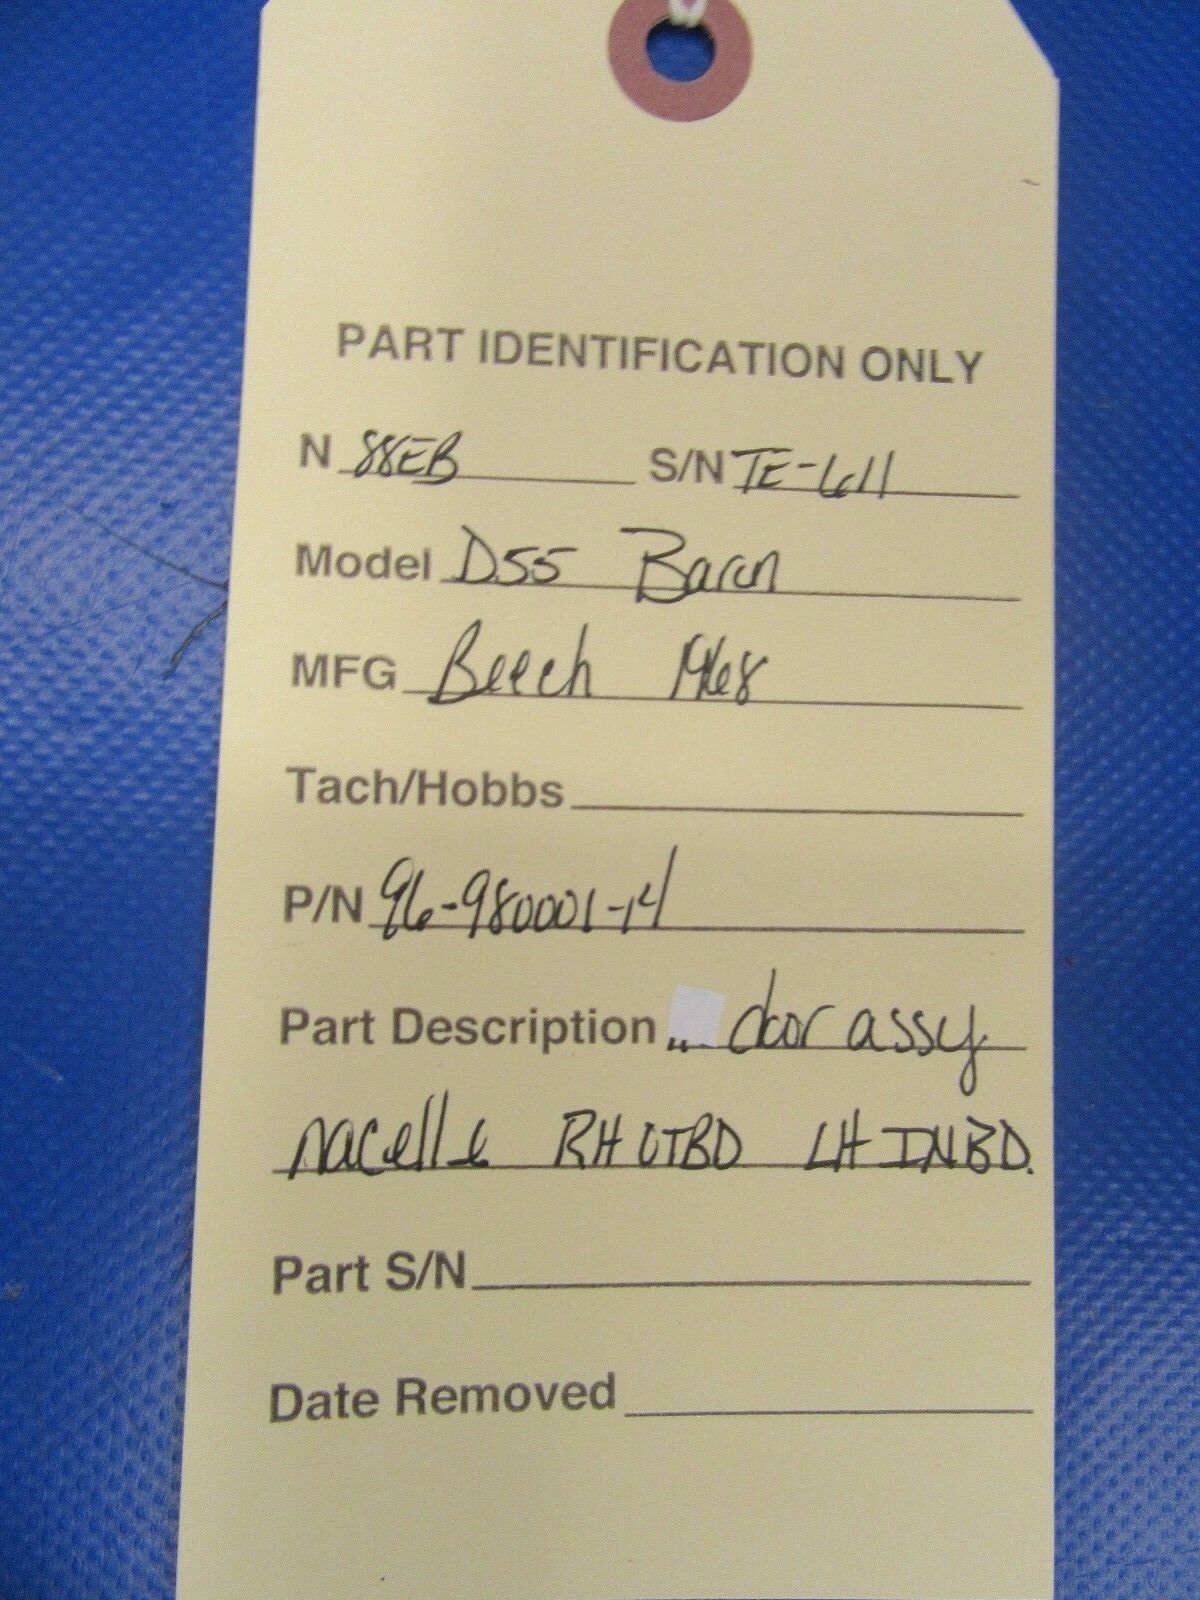 PART IDENTIFICATION ONLY
N 88EB S/N TE-611
Model D55 Baron
MFG Beech 1968
Tach/Hobbs
P/N 96-980001-14
Part Description door assy
nacelle RH OTBD LH INBD.
Part S/N
Date Removed